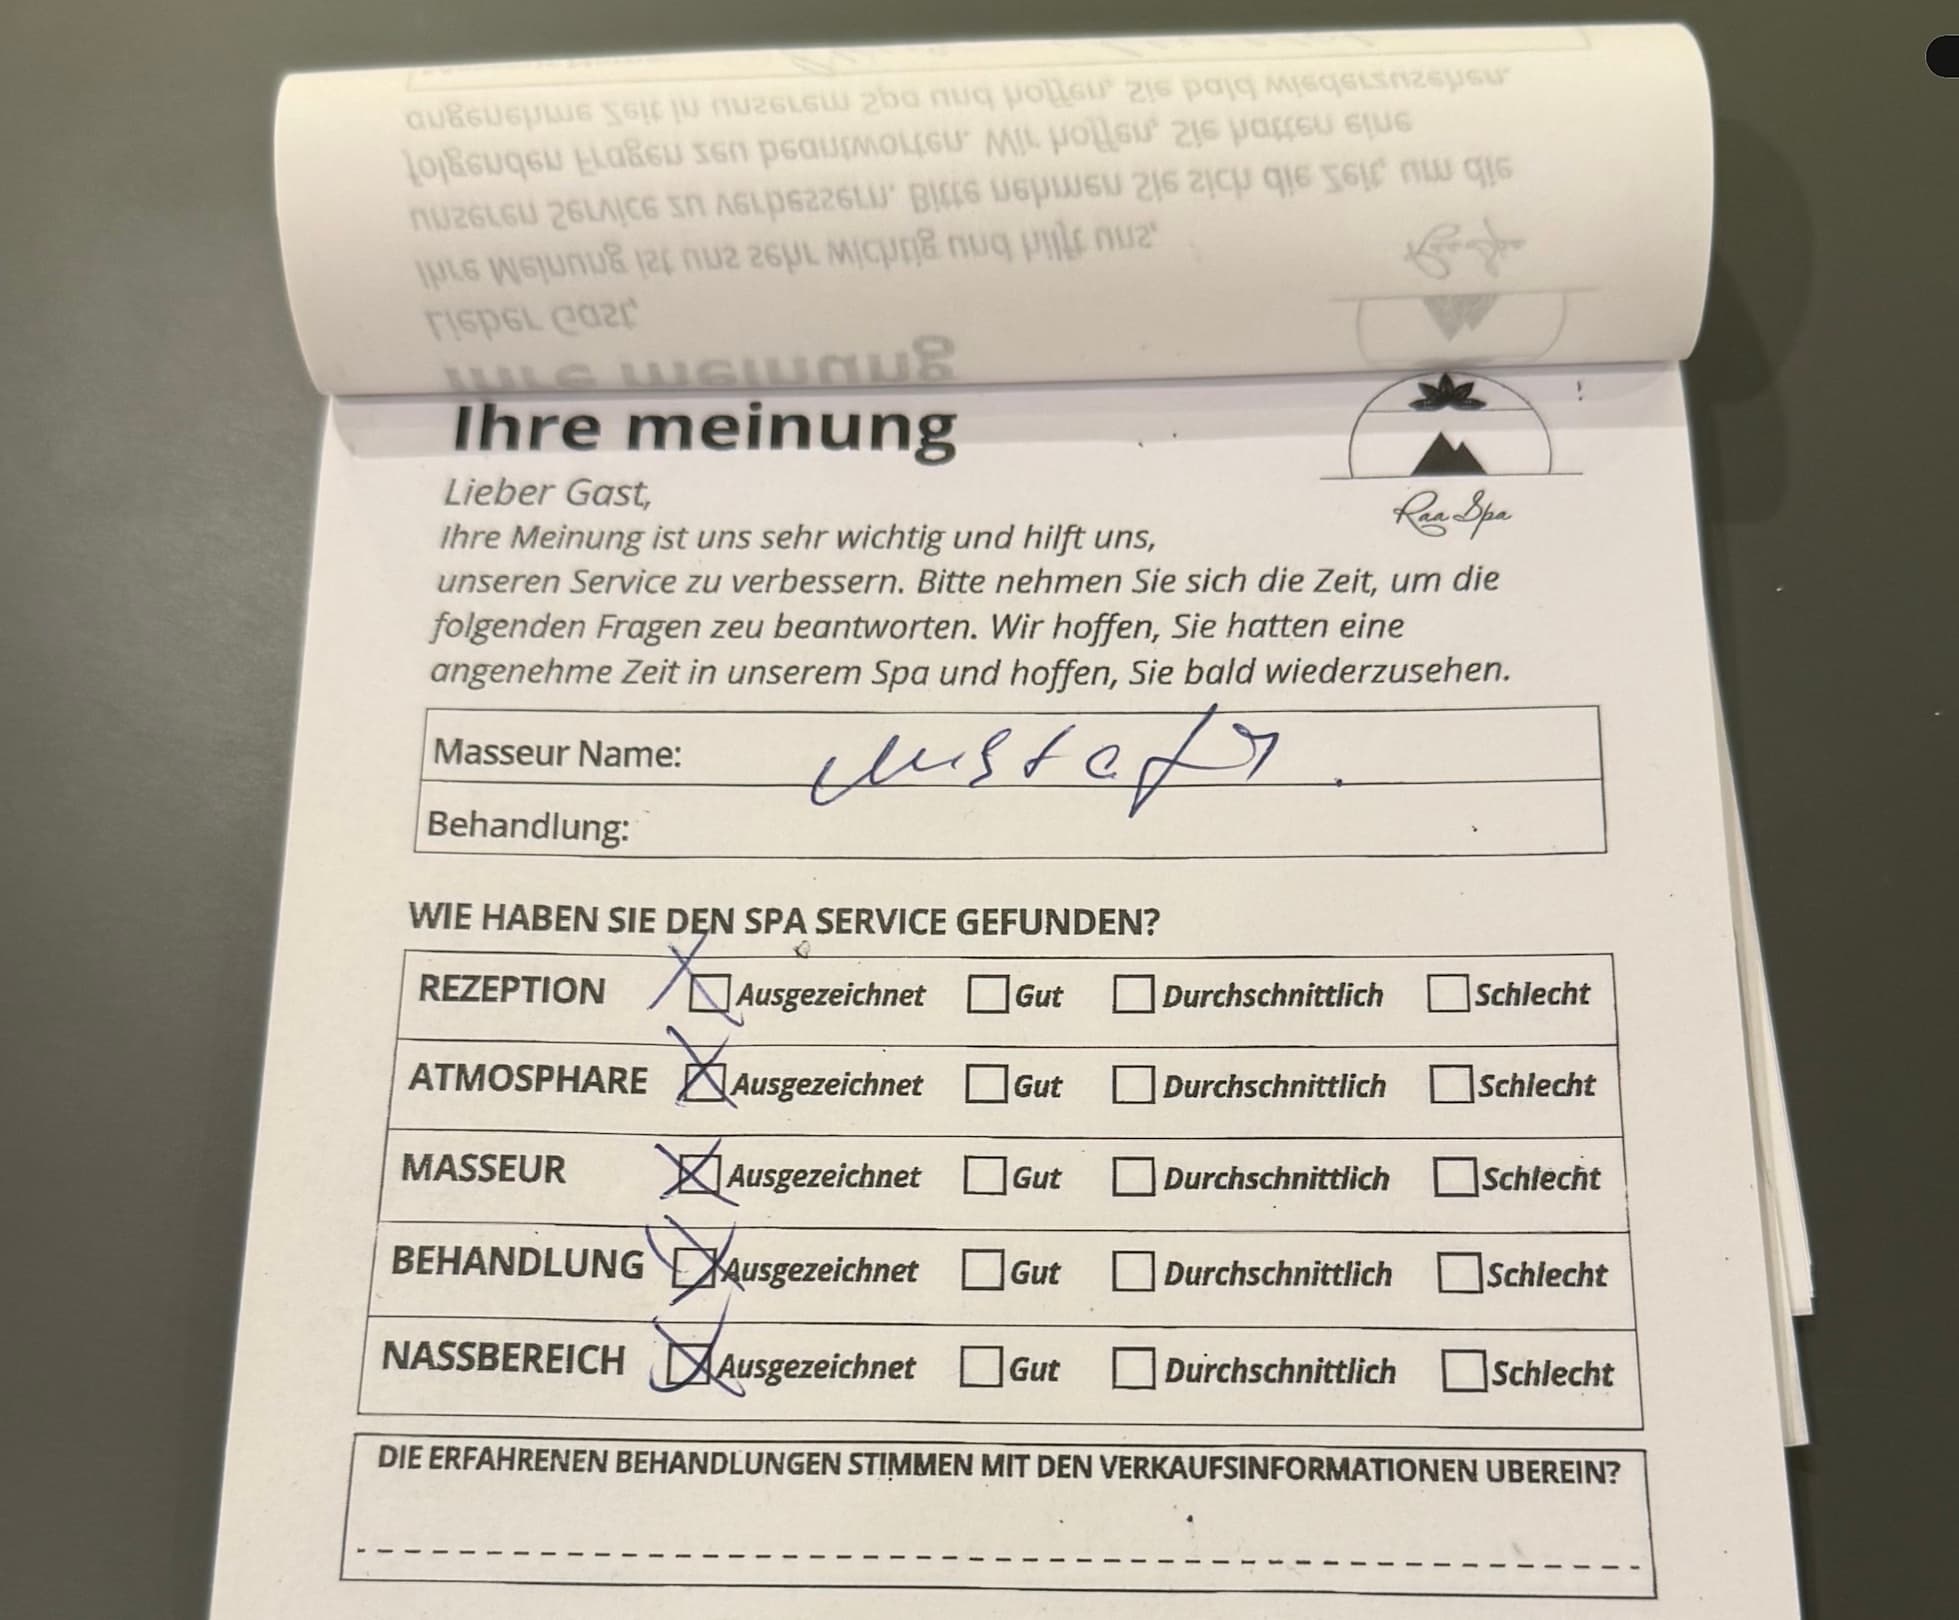 Ihre meinung
Lieber Gast,
Ihre Meinung ist uns sehr wichtig und hilft uns,
unseren Service zu verbessern. Bitte nehmen Sie sich die Zeit, um die
folgenden Fragen zeu beantworten. Wir hoffen, Sie hatten eine
angenehme Zeit in unserem Spa und hoffen, Sie bald wiederzusehen.
Raa Spa
Masseur Name: Mustafa
Behandlung:
WIE HABEN SIE DEN SPA SERVICE GEFUNDEN?
REZEPTION Ausgezeichnet Gut Durchschnittlich Schlecht
ATMOSPHARE Ausgezeichnet Gut Durchschnittlich Schlecht
MASSEUR Ausgezeichnet Gut Durchschnittlich Schlecht
BEHANDLUNG Ausgezeichnet Gut Durchschnittlich Schlecht
NASSBEREICH Ausgezeichnet Gut Durchschnittlich Schlecht
DIE ERFAHRENEN BEHANDLUNGEN STIMMEN MIT DEN VERKAUFSINFORMATIONEN UBEREIN?